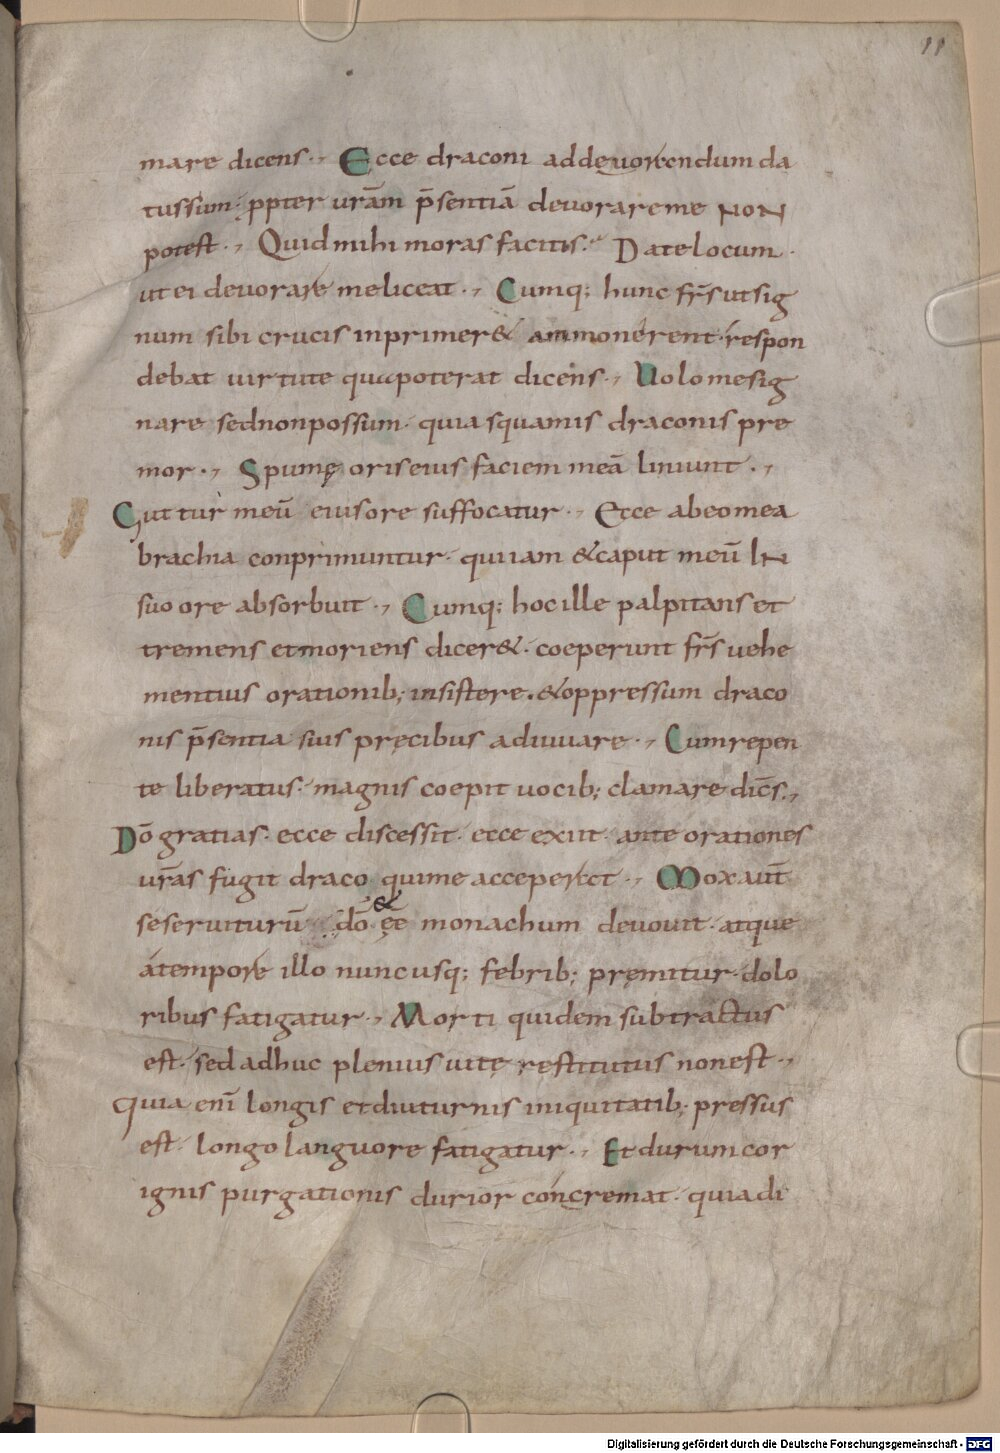 11
mare dicens·, Ecce draconi addeuorendum da
tussum· ppter urām p̄sentiā deuorareme NON
potest·, Quidmihi moras facitis·, Datelocum·
utei deuorare meliceat·, Cumq; hunc fr̄s utsig
num sibi crucis inprimer& ammonerent· respon
debat uirtute quapoterat dicens·, Uolomesig
nare sednonpossum· quia squamis draconis pre
mor·, Spumę oriseius faciem meā liniunt·,
Guttur meū eiusore suffocatur·, Ecce abeomea
brachia conprimuntur· quiiam &caput meū IN
suo ore absorbuit·, Cumq; hocille palpitans et
tremens etmoriens dicer&· coeperunt fr̄s uehe
mentius orationib; insistere· &oppressum draco
nis p̄sentia suis pręcibus adiuuare·, Cumrepen
te liberatus· magnis coepit uocib; clamare dic̄s·,
Dō gratias· ecce discessit· ecce exiit· ante orationes
ur̄as fugit draco quime acceperat·, Mox aūt
seseruiturū dō & eē monachum deuouit· atque
atempore illo nuncusq; febrib; pręmitur· dolo
ribus fatigatur·, Morti quidem subtractus
est· sedadhuc plenius uitę restitutus nonest·,
Quia enī longis etdiuturnis iniquitatib; pressus
est· longo languore fatigatur·, Et durumcor
ignis purgationis durior concremat· quiadi
Digitalisierung gefördert durch die Deutsche Forschungsgemeinschaft - DFG